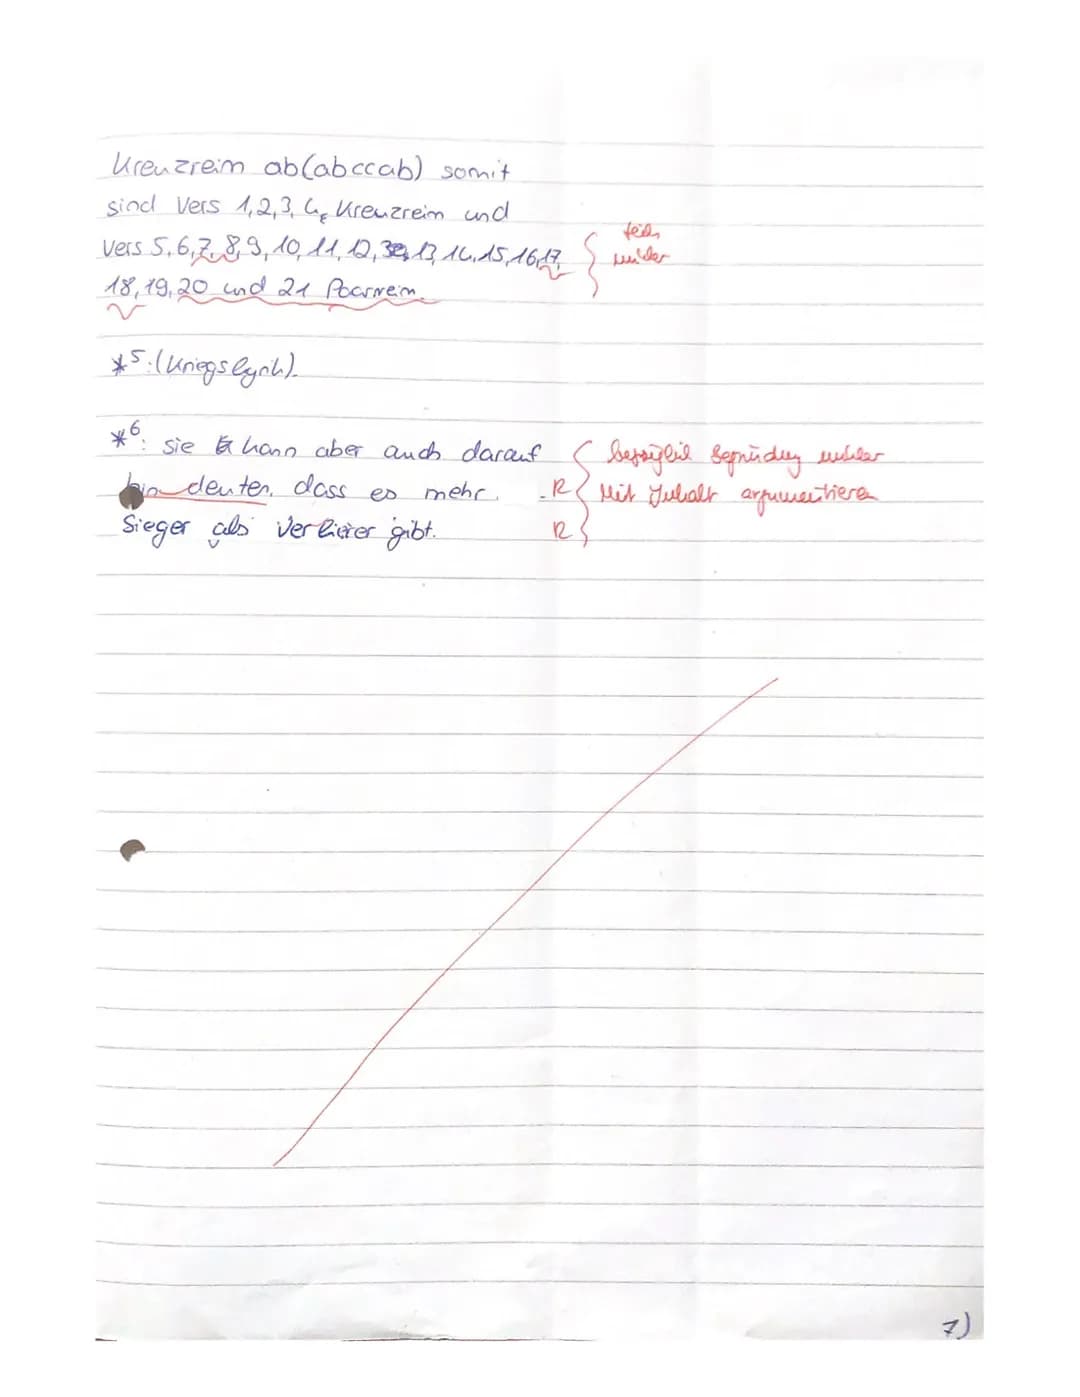 Kreuzreim ab(abccab) somit
sind Vers 1,2,3, 4, Kreuzreim und
Vers 5,6,7,8,9,10,11,12, 13,14,15,16,17,
18,19,20 und 21 Paarreim.
teils
unklar
*5: (Kriegslyrik).
*6: sie kann aber auch darauf
hin deuten, dass es mehr
Sieger als Verlierer gibt.
R
R
Begründung unklar
Mit Inhalt argumentieren
7)